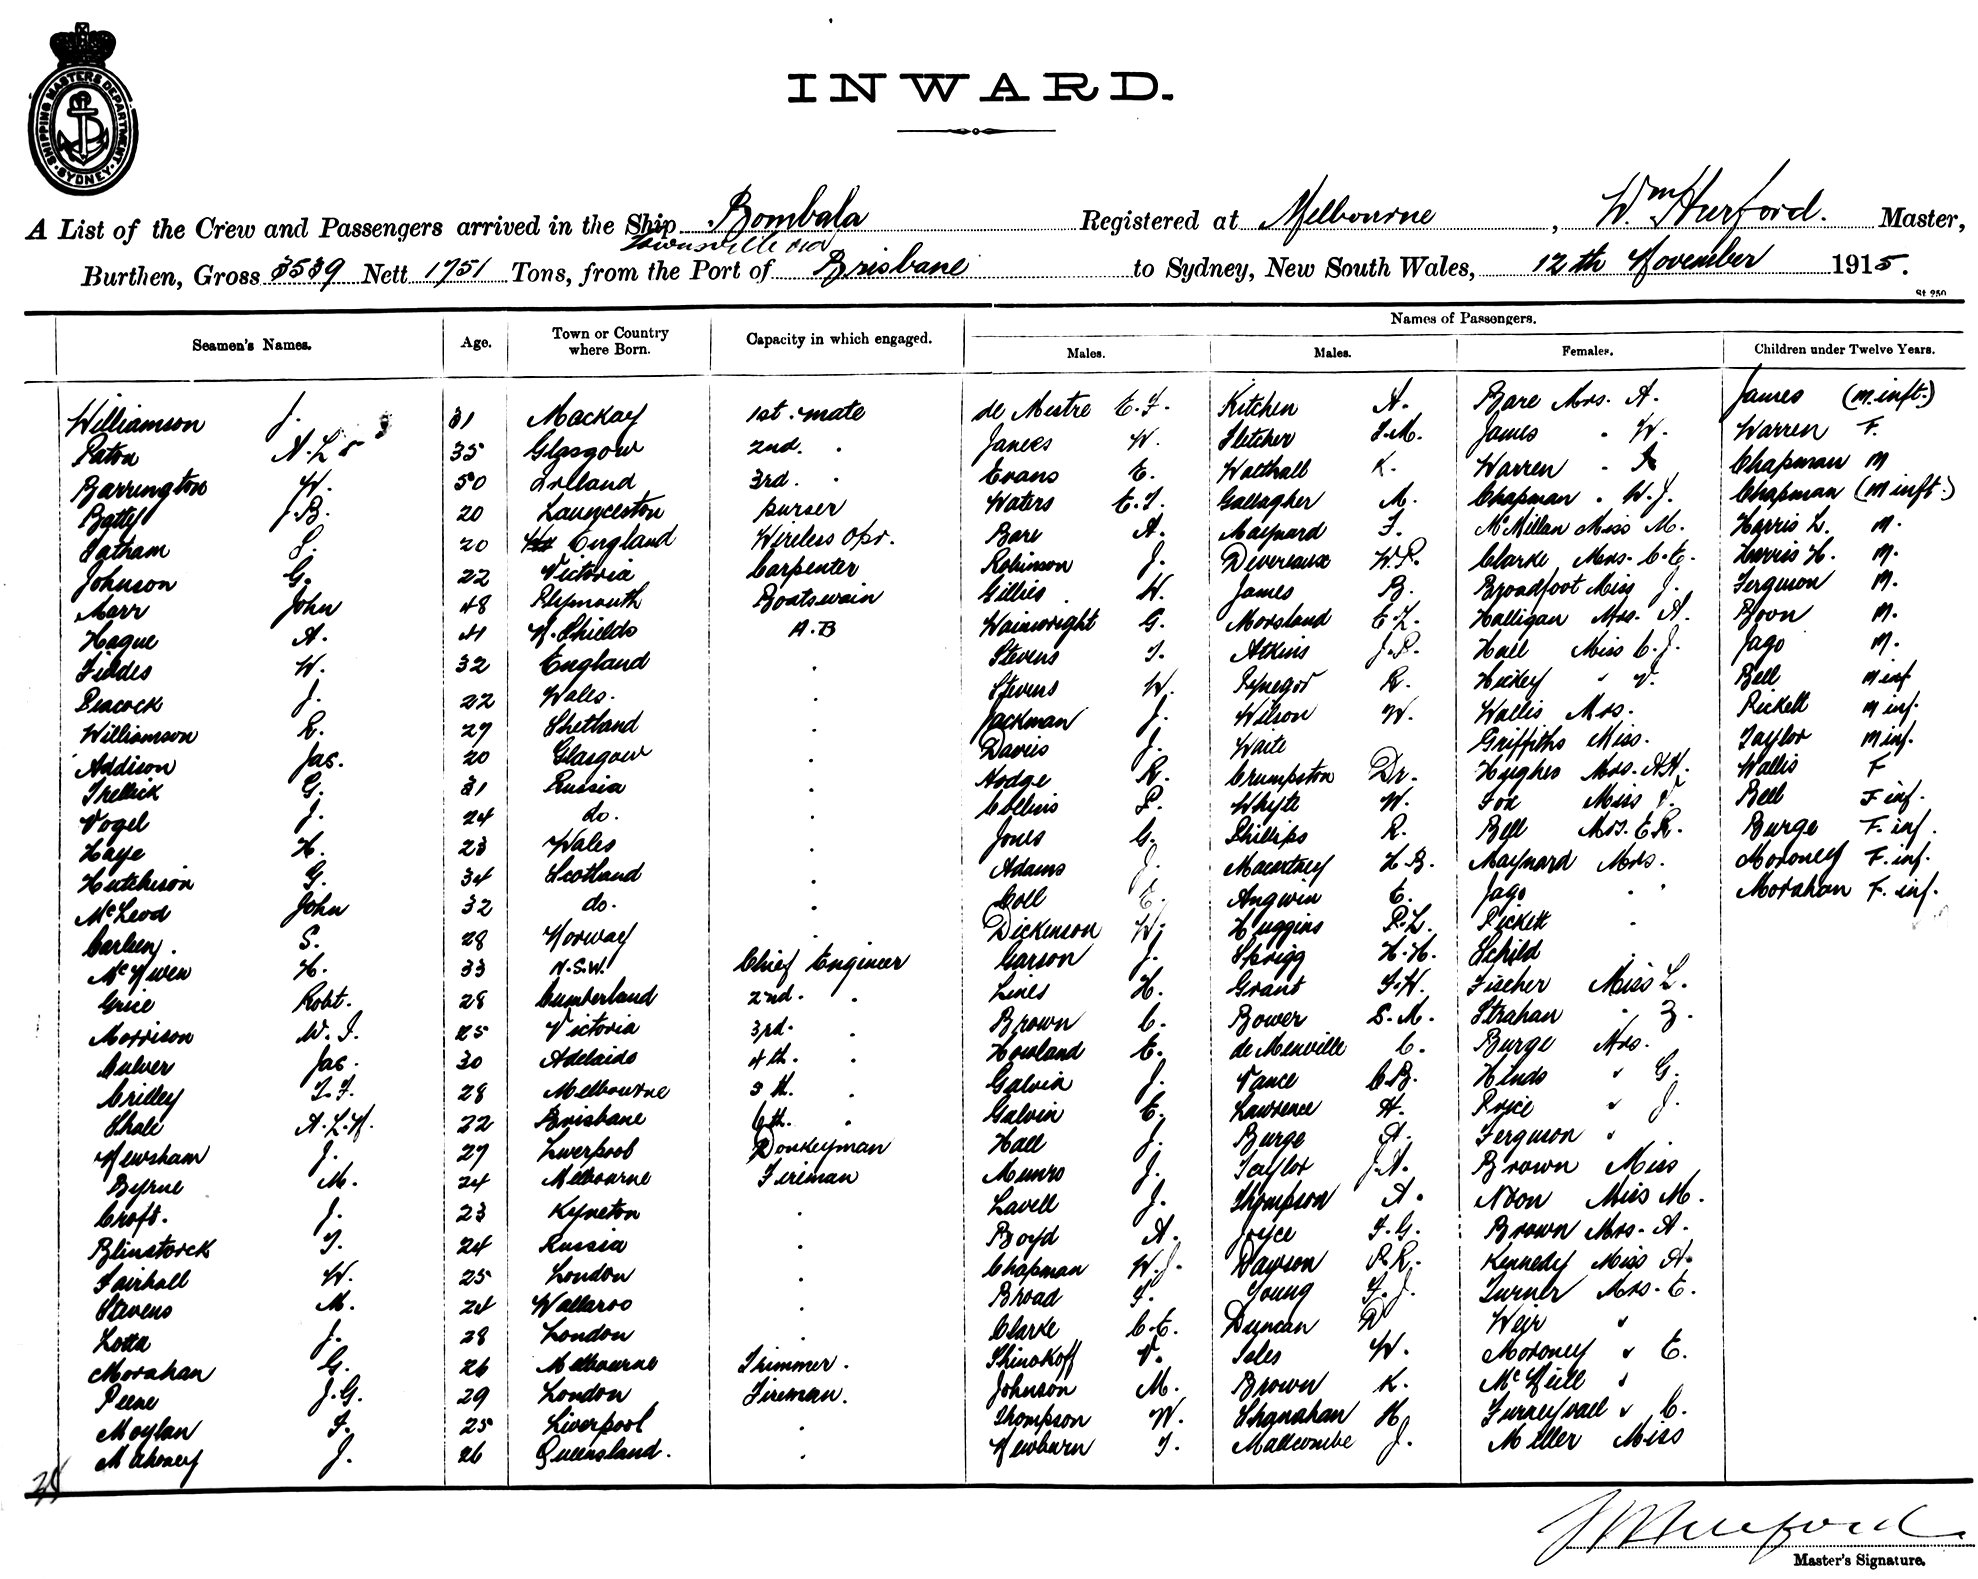 SHIPPING MASTERS DEPARTMENT
SYDNEY
INWARD.
A List of the Crew and Passengers arrived in the Ship Bombala Registered at Melbourne, Wm Hurford. Master,
Townsville via
Burthen, Gross 3539 Nett 1751 Tons, from the Port of Brisbane to Sydney, New South Wales, 12th November 1915.
St 250
Names of Passengers.
Seamen's Names. Age. Town or Country where Born. Capacity in which engaged. Males. Males. Females. Children under Twelve Years.
Williamson J. 31 Mackay 1st. mate de Mestre E.F. Kitchen A. Bare Mrs. A. James (m. inft.)
Paton A.L. 35 Glasgow 2nd. . James W. Fletcher F.M. James . W. Warren F.
Barrington W. 50 Ireland 3rd. . Evans E. Walthall K. Warren . Chapman M
Batty J.B. 20 Launceston purser Waters E.J. Gallagher M. Chapman . W.J. Chapman (M inft.)
Latham S. 20 England Wireless Opr. Bare A. Maynard F. McMillan Miss M. Harris L. M.
Johnson G. 22 Victoria Carpenter Robinson J. Devereaux W.P. Clarke Mrs. C.E. Harris H. M.
Marr John 48 Plymouth Boatswain Gillies W. James B. Broadfoot Miss J. Ferguson M.
Hague A. 41 N. Shields A.B Wainwright G. Morsland E.L. Halligan Mrs. A. Boon M.
Fiddes W. 32 England . Stevens T. Atkins J.P. Hall Miss C.J. Jago M.
Peacock J. 22 Wales. . Stevens W. R. Hickey " V. Bell M inf
Williamson R. 29 Shetland . Jackman J. Wilson W. Wallis Mrs. Rickett M inf.
Addison Jas. 20 Glasgow . Davies J. Waite Griffiths Miss. Taylor M inf.
Trellick G. 31 Russia . Hodge R. Crumpston Dr. Hughes Mrs. A.H. Wallis F
Vogel J. 24 do. . Collins P. Whyte W. Fox Miss V. Bell F inf.
Haye H. 23 Wales . Jones G. Phillips R. Bell Mrs. E.R. Burge F. inf.
Hutchison G. 34 Scotland . Adams J. Macartney H.B. Maynard Mrs. Moroney F. inf.
McLeod John 32 do. . Coll E. Angwin E. Jago . " Morahan F. inf.
Carlsen. S. 28 Norway . Dickenson W. Huggins P.L. Pickett .
McNiven H. 33 N.S.W. Chief Engineer Carson J. Skrigg H.H. Schild .
Grice Robt. 28 Cumberland 2nd. . Lines H. Grant F.H. Fischer Miss L.
Morrison W.J. 25 Victoria 3rd. . Brown C. Bower S.M. Strahan " Z.
Culver Jas. 30 Adelaide 4th. . Howland E. de Menville C. Burge Mrs.
Crilley T.F. 28 Melbourne 5th. . Galvin J. Vance C.B. Hinds " G.
Shale A.L.H. 22 Brisbane 6th. . Galvin E. Lawrence H. Pryce " J.
Newsham J. 27 Liverpool Donkeyman Hall J. Burge A. Ferguson "
Byrne M. 24 Melbourne Fireman Munro J. Taylor J.A. Brown Miss
Croft. J. 23 Kyneton . Lavell J. Thompson A. Noon Miss M.
Blinstorck T. 24 Russia . Boyd A. Joyce F.G. Brown Mrs. A.
Fairhall W. 25 London . Chapman W.J. Dawson P.R. Kennedy Miss A.
Stevens M. 24 Wallaroo . Broad F. Young F.J. Turner Mrs. E.
Lotta J. 28 London . Clarke C.E. Duncan D Weir "
Morahan G. 26 Melbourne Trimmer. Shinokoff V. Isles W. Moroney " E.
Peene J.G. 29 London Fireman. Johnson M. Brown K. McNeill "
Moylan F. 25 Liverpool . Thompson W. Shanahan H Furneyvall " C.
Mahoney J. 26 Queensland. . Newburn T. Maccombe J. Miller Miss
35
Wm Hurford
Master's Signature.